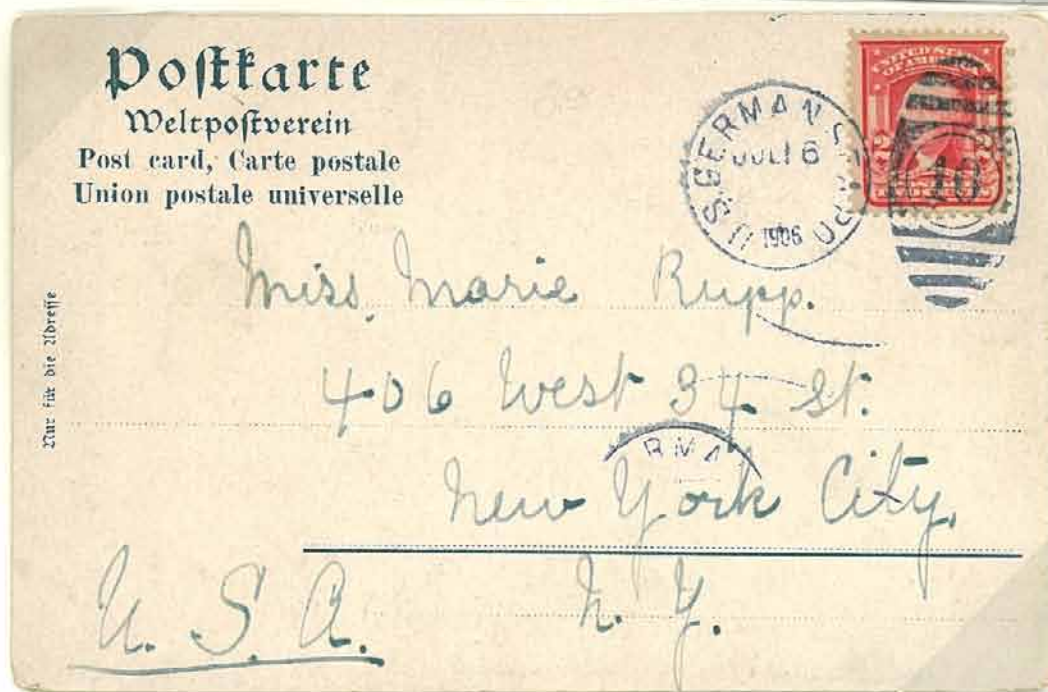 Postkarte
Weltpostverein
Post card, Carte postale
Union postale universelle
Nur für die Adresse
U.S. GERMAN
JULI 6
1906
UNITED STATES
OF AMERICA
2 2
10
Miss Marie Rupp.
406 West 34 St.
RMA
New York City,
N. Y.
U. S. A.